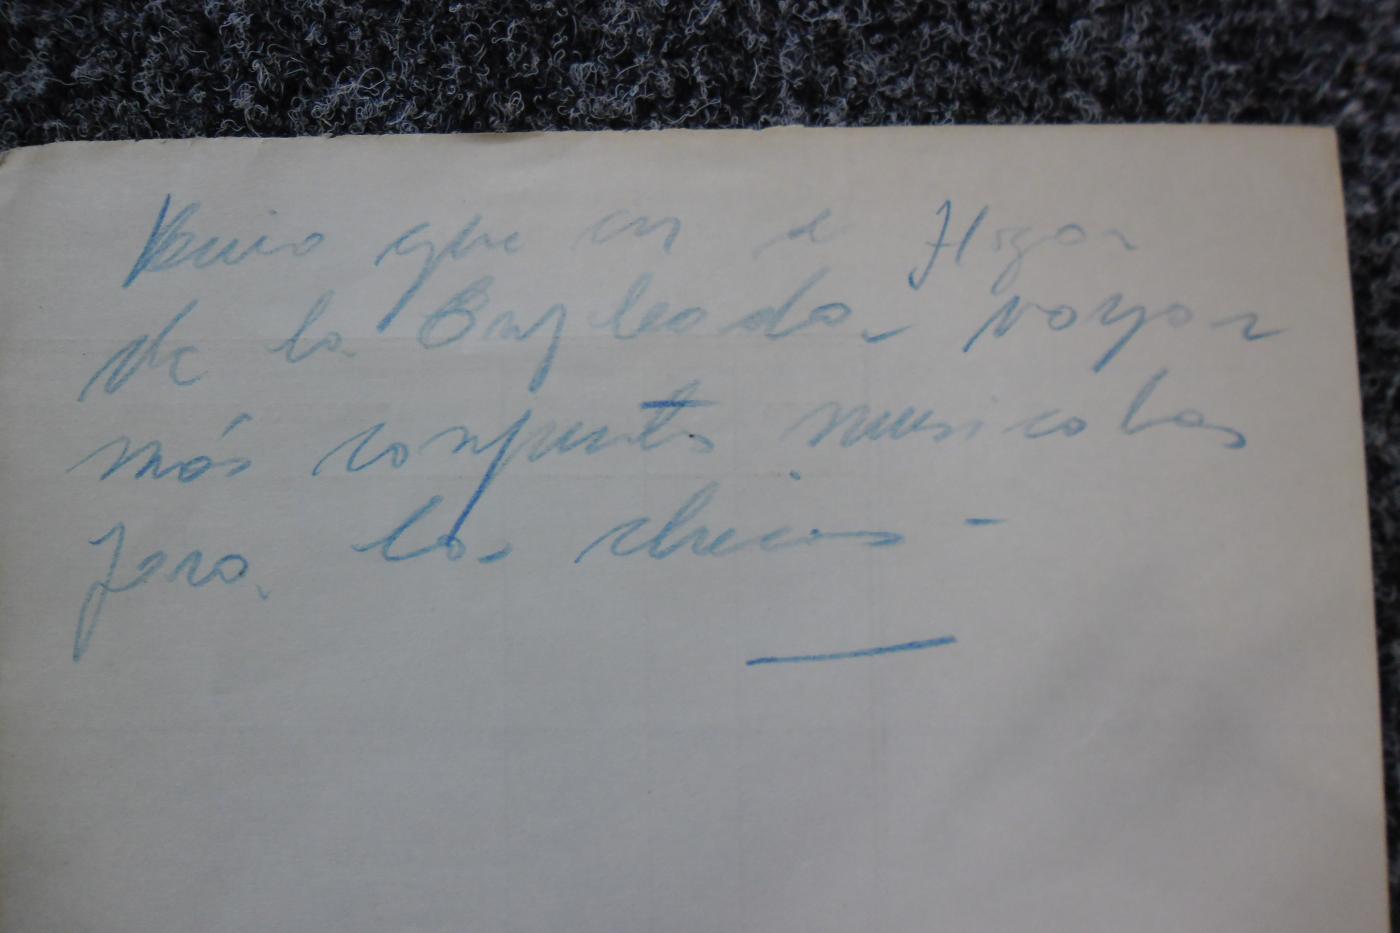 que en e Hogar
de la Empleada vayan
más conjuntos musicales
para los chicos -